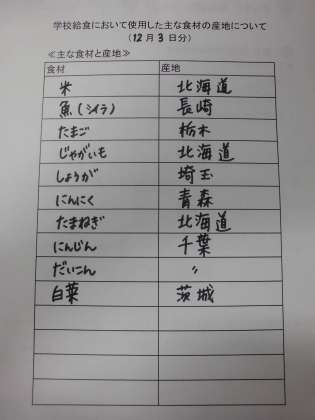 学校給食において使用した主な食材の産地について
(12月3日分)
≪主な食材と産地≫
食材 産地
米 北海道
魚(シイラ) 長崎
たまご 栃木
じゃがいも 北海道
しょうが 埼玉
にんにく 青森
たまねぎ 北海道
にんじん 千葉
だいこん 〃
白菜 茨城